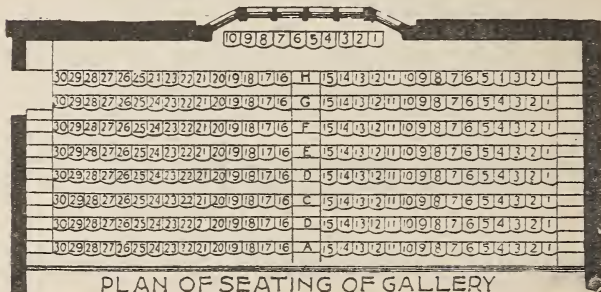 10 9 8 7 6 5 4 3 2 1
30 29 28 27 26 25 24 23 22 21 20 19 18 17 16 H 15 14 13 12 11 10 9 8 7 6 5 4 3 2 1
30 29 28 27 26 25 24 23 22 21 20 19 18 17 16 G 15 14 13 12 11 10 9 8 7 6 5 4 3 2 1
30 29 28 27 26 25 24 23 22 21 20 19 18 17 16 F 15 14 13 12 11 10 9 8 7 6 5 4 3 2 1
30 29 28 27 26 25 24 23 22 21 20 19 18 17 16 E 15 14 13 12 11 10 9 8 7 6 5 4 3 2 1
30 29 28 27 26 25 24 23 22 21 20 19 18 17 16 D 15 14 13 12 11 10 9 8 7 6 5 4 3 2 1
30 29 28 27 26 25 24 23 22 21 20 19 18 17 16 C 15 14 13 12 11 10 9 8 7 6 5 4 3 2 1
30 29 28 27 26 25 24 23 22 2 20 19 18 17 16 D 15 14 13 12 11 10 9 8 7 6 5 4 3 2 1
30 29 28 27 26 25 24 23 22 21 20 19 18 17 16 A 15 14 13 12 11 10 9 8 7 6 5 4 3 2 1
PLAN OF SEATING OF GALLERY